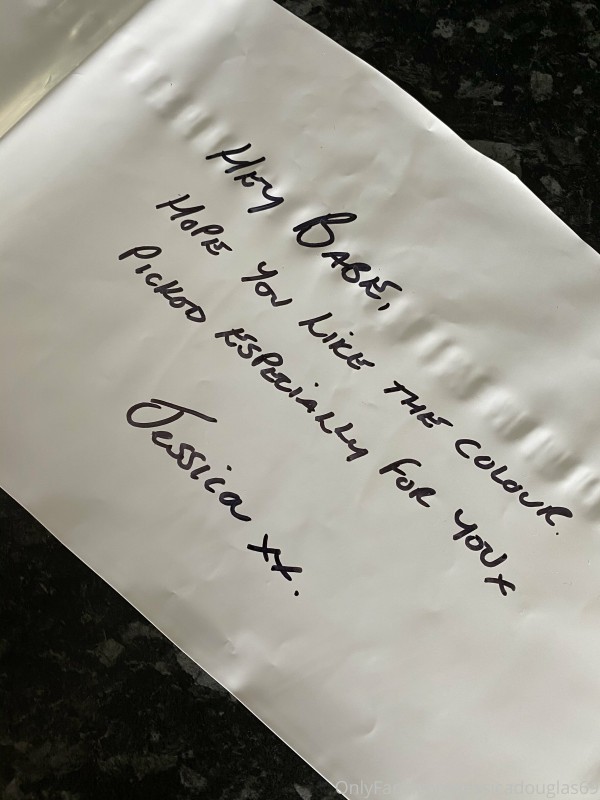 Hey Babe,
Hope you like the colour.
Picked especially for you x
Jessica xx.